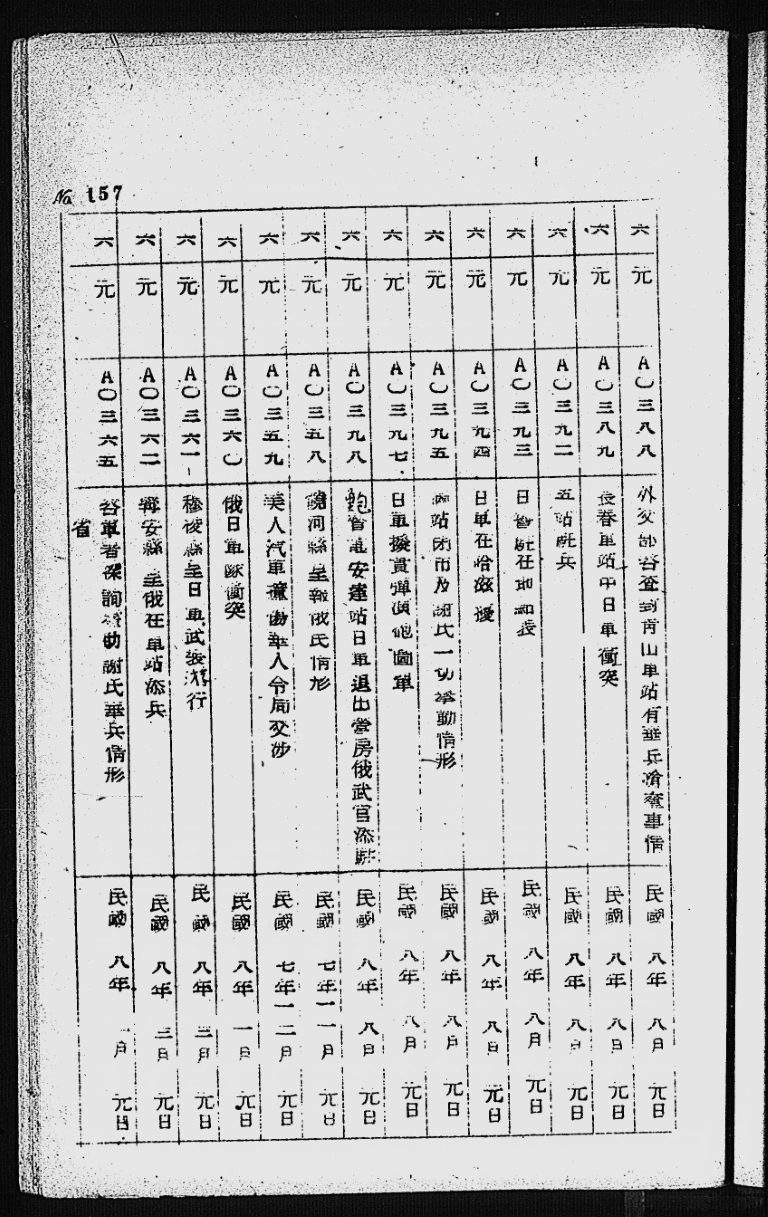 No 157
六 元 A〇三八八 外交 咨查 山車站有 兵搶奪事情 民國八年八月元日
六 元 A〇三八九 長春車站中日軍衝突 民國八年八月元日
六 元 A〇三九二 五站 兵 民國八年八月元日
六 元 A〇三九三 日 在 民國八年八月元日
六 元 A〇三九四 日軍在哈 民國八年八月元日
六 元 A〇三九五 站閉市及謝氏一切舉動情形 民國八年八月元日
六 元 A〇三九七 日軍 民國八年八月元日
六 元 A〇三九八 鮑省 安達站日軍退出營房俄武官添 民國八年八月元日
六 元 A〇三五八 饒河縣呈報俄民情形 民國七年一一月元日
六 元 A〇三五九 美人汽車撞傷華人令局交涉 民國七年一二月元日
六 元 A〇三六〇 俄日軍隊衝突 民國八年一月元日
六 元 A〇三六一 穆稜縣呈日軍武裝游行 民國八年三月元日
六 元 A〇三六二 安縣呈俄在車站添兵 民國八年三月元日
六 元 A〇三六五 省 探詢 助謝氏華兵情形 民國八年一月元日